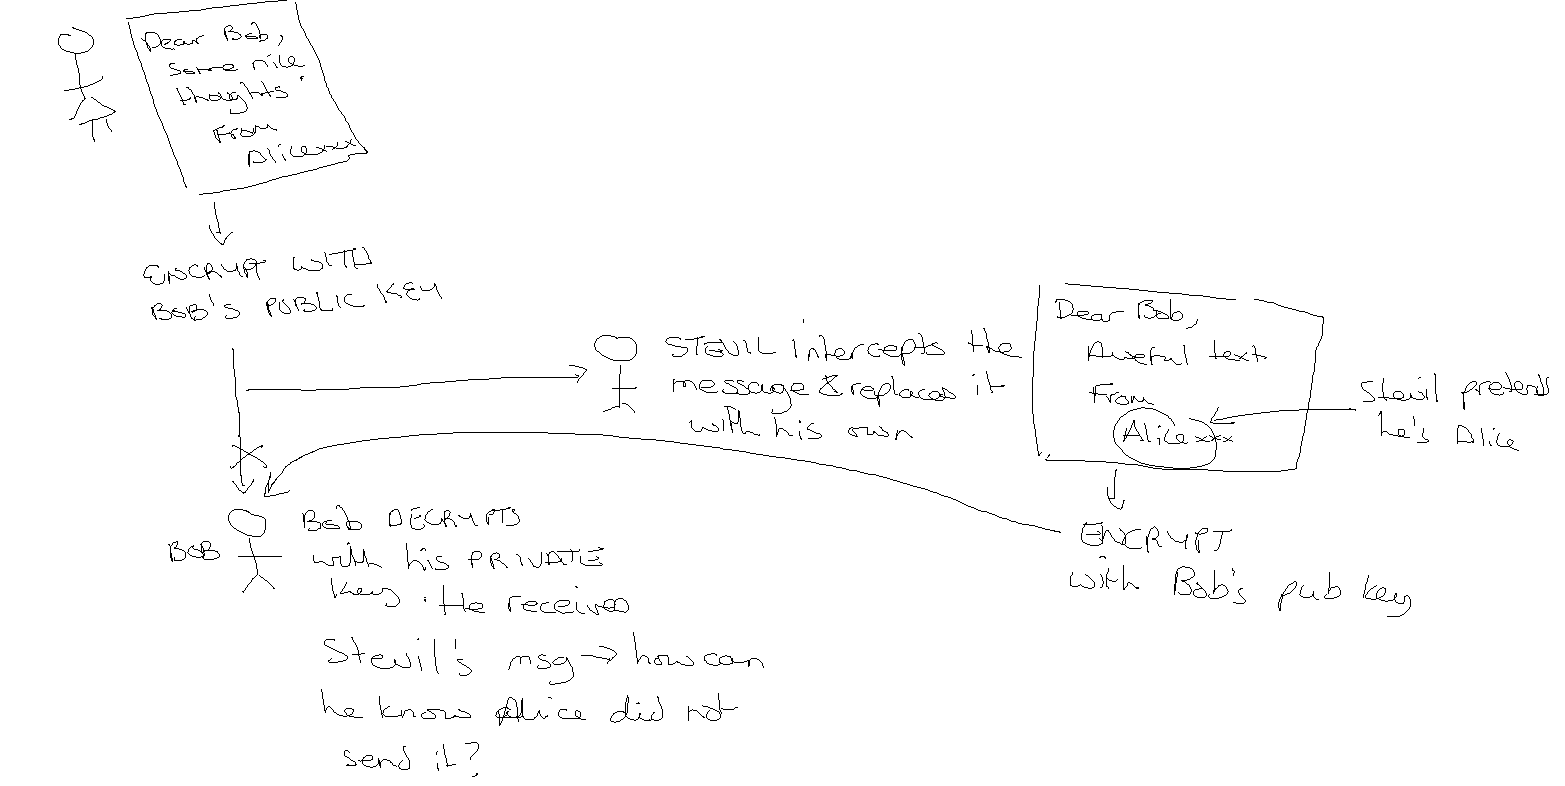 Dear Bob,
Some nice
thoughts.
From
Alice xxx
ENCRYPT WITH
BOB'S PUBLIC KEY
STEVIL intercepts the
message & replaces it
with his own
Dear Bob,
Aweful text
From
Alice xxx
Stevil pretends
he's Alice
ENCRYPT
with Bob's pub key
BOB
Bob DECRYPTS
with his PRIVATE
key. He receives
Stevil's msg → how can
he know Alice did not
send it?